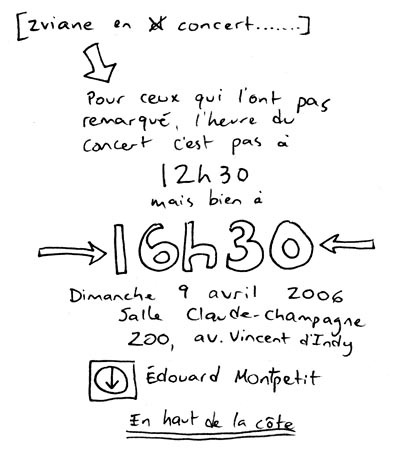 [zviane en concert.......]
Pour ceux qui l'ont pas
remarqué, l'heure du
concert c'est pas à
12h30
mais bien à
16h30
Dimanche 9 avril 2006
Salle Claude-Champagne
200, av. Vincent d'Indy
Édouard Montpetit
En haut de la côte